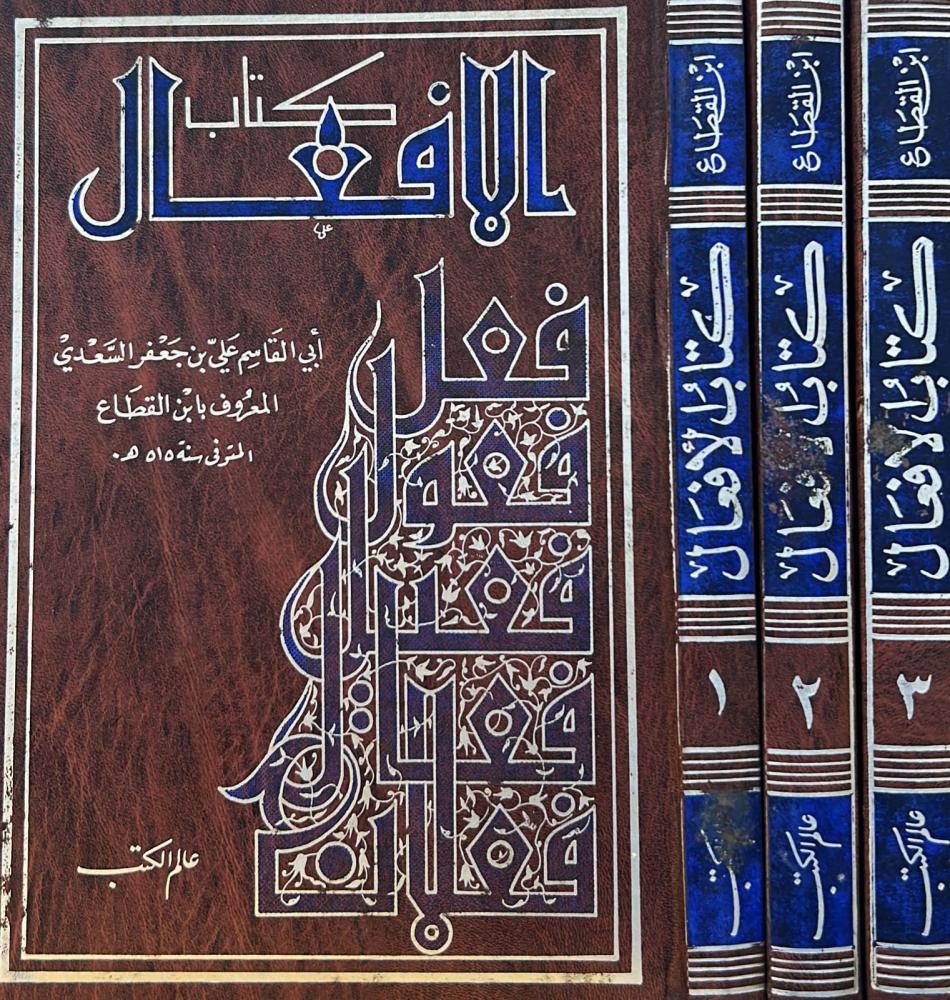 كتاب
الأفعال
أبي القاسم علي بن جعفر السعدي
المعروف بابن القطاع
المتوفى سنة ٥١٥ هـ.
فعل
فعول
فعيل
فعال
فعلان
عالم الكتب
ابن القطاع
كتاب الأفعال
١
الكتب
ابن القطاع
كتاب الأفعال
٢
عالم الكتب
ابن القطاع
كتاب الأفعال
٣
عالم الكتب